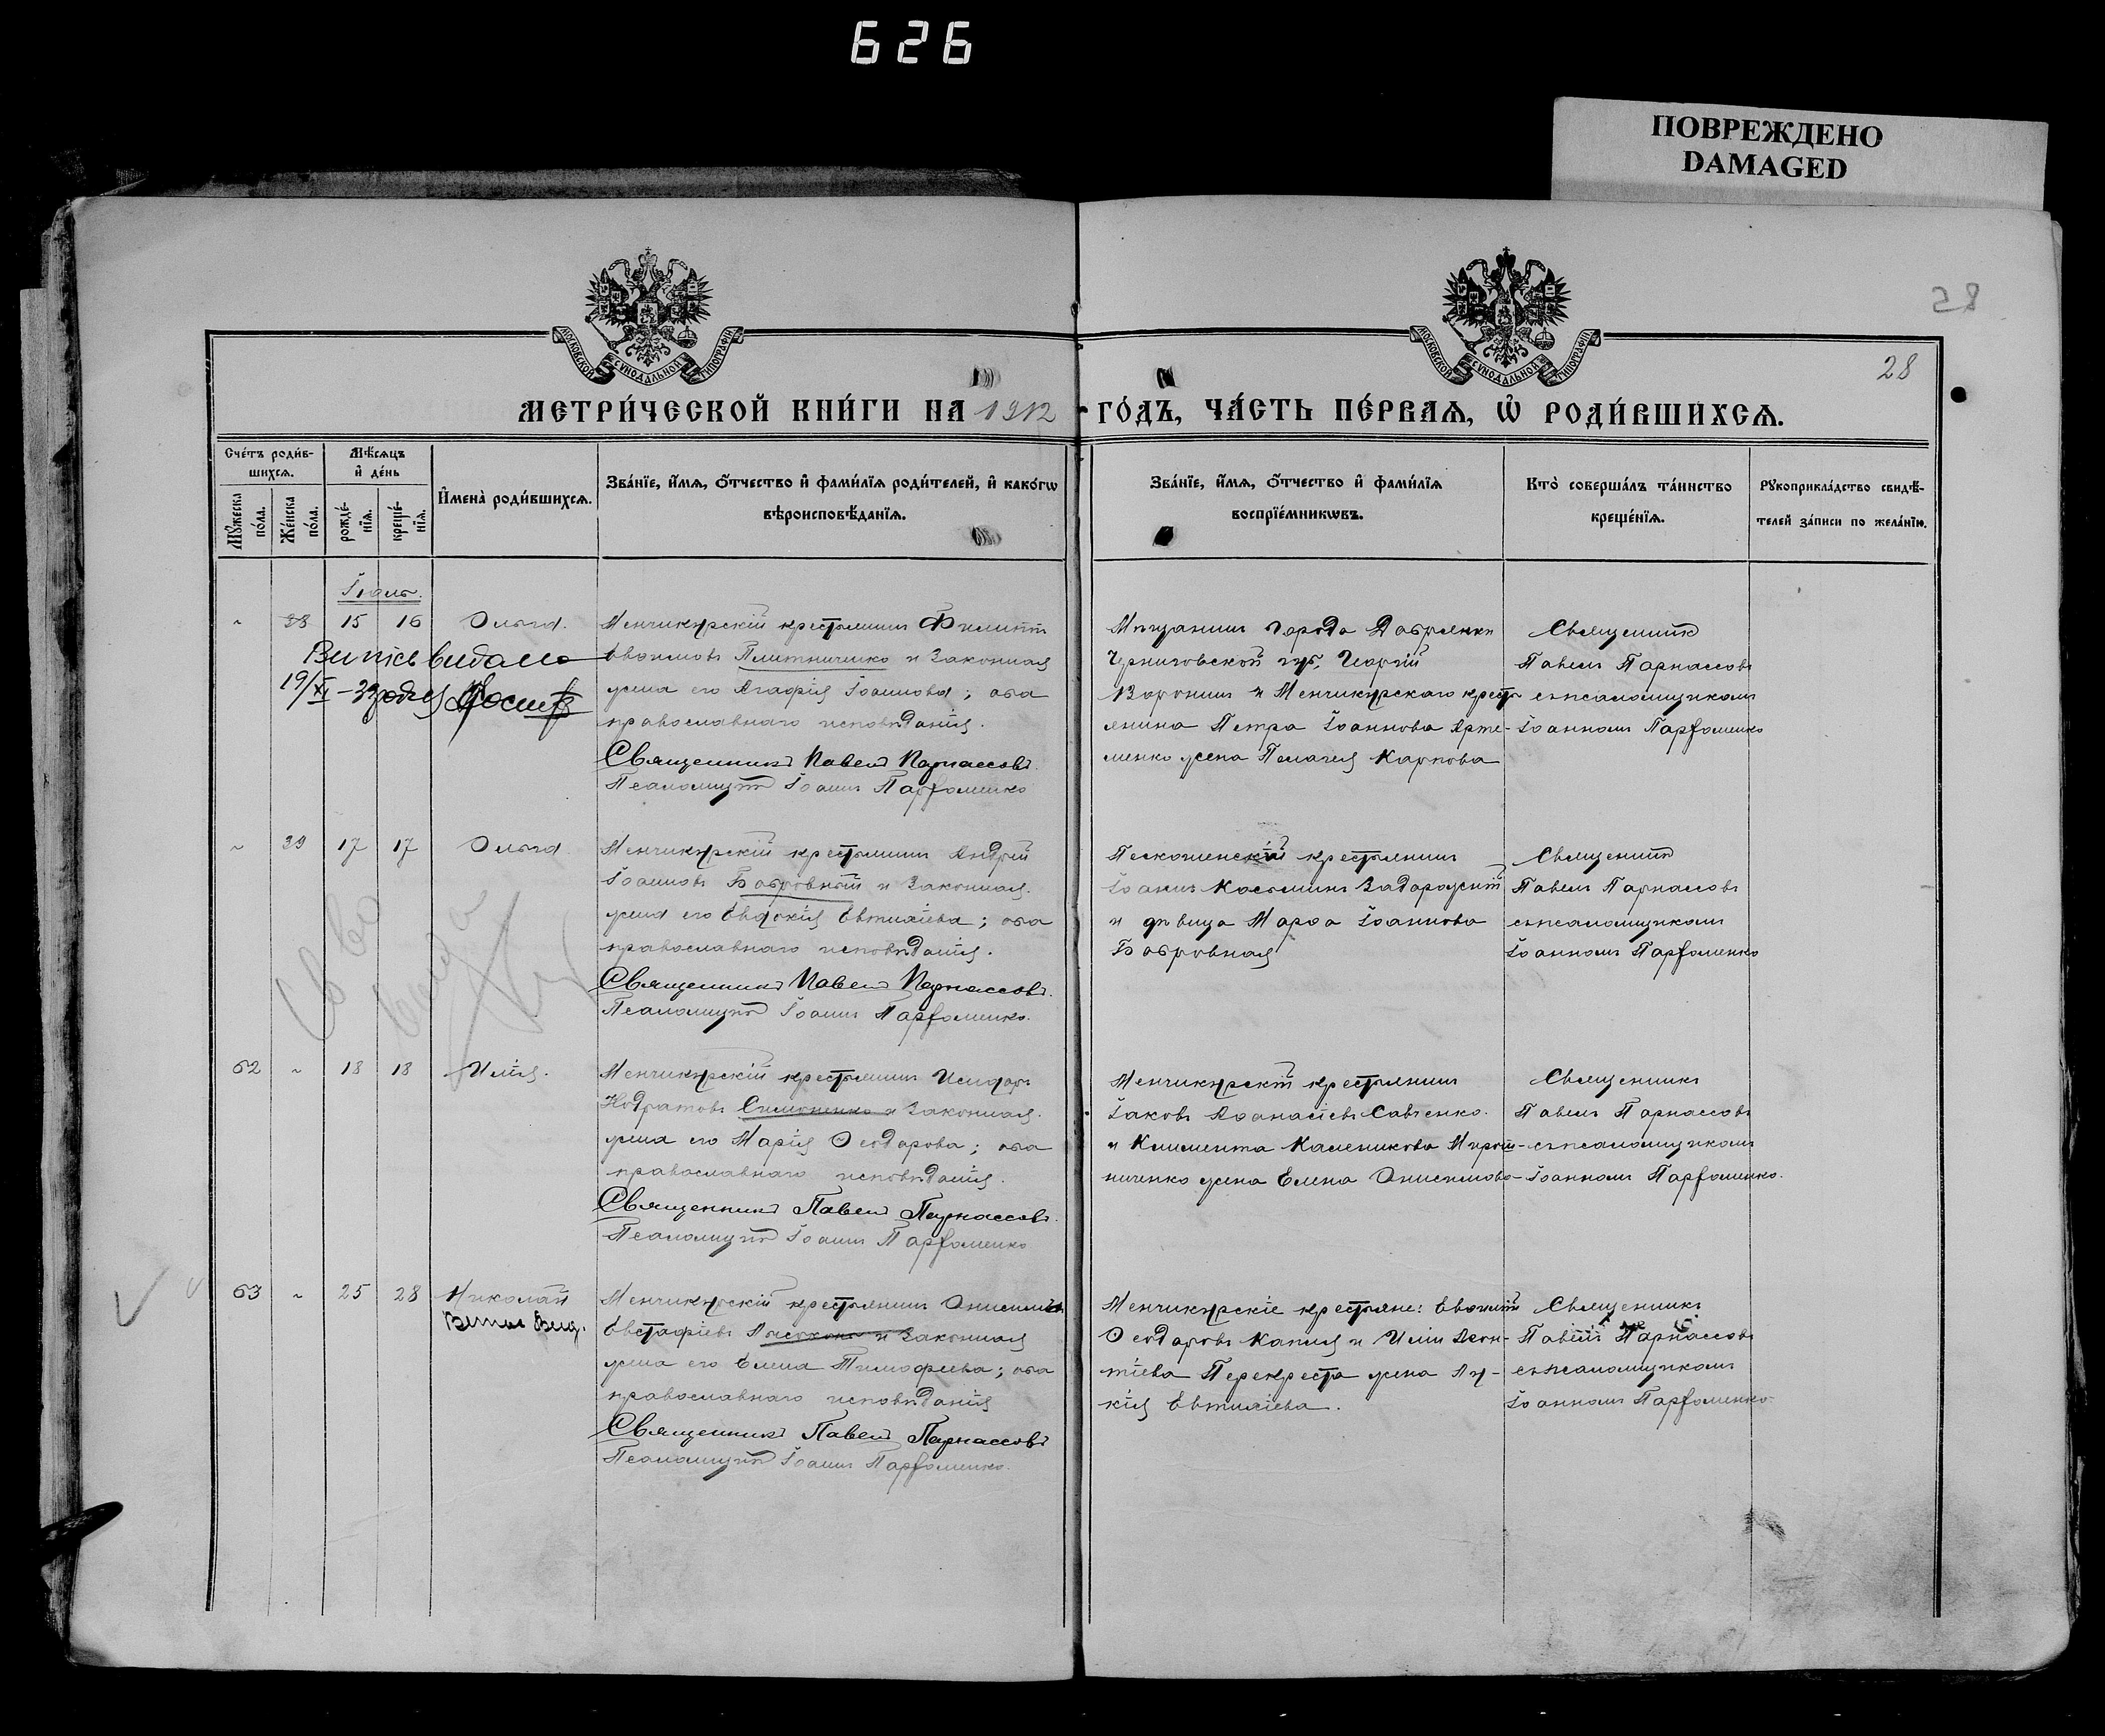 626
ПОВРЕЖДЕНО
DAMAGED
28
28
МОСКОВСКОЙ СѴНОДАЛЬНОЙ ТИПОГРАФІИ
МОСКОВСКОЙ СѴНОДАЛЬНОЙ ТИПОГРАФІИ
МЕТРИ́ЧЕСКОЙ КНИ́ГИ НА 1912 ГО́ДЪ, ЧА́СТЬ ПЕ́РВАѦ, Ѡ҆ РОДИ́ВШИХСѦ.
Сче́тъ роди́в-
шихсѧ.
Мꙋ́жеска по́ла.
Же́нска по́ла.
Мѣ́сѧцъ
и҆ де́нь
рожде́-
нїѧ.
креще́-
нїѧ.
И҆мена̀ роди́вшихсѧ.
Зва́нїе, и҆́мѧ, ѻ҆́тчество и҆ фами́лїѧ роди́телей, и҆ како́гѡ
вѣроисповѣ́данїѧ.
Зва́нїе, и҆́мѧ, ѻ҆́тчество и҆ фами́лїѧ
воспрїе́мникѡвъ.
Кто̀ соверша́лъ та́инство
креще́нїѧ.
Рꙋкоприкла́дство свидѣ́-
телей за́писи по жела́нїю.
Іюль.
38 15 16 Ольга.
Випісь видано
19/XI - 33
Менчикурскій крестьянинъ Филиппъ
Евѳимовъ Плитниченко и законная
жена его Агафія Іоаннова; оба
православнаго исповѣданія.
Священникъ Павелъ Парнассовъ.
Псаломщикъ Іоаннъ Парфоменко
Мѣщанинъ города Добрянки
Черниговской губ. Георгій
Воронин и Менчикурскаго кресть
янина Петра Іоаннова Арте-
менко жена Пелагея Карпова
Священникъ
Павелъ Парнассовъ
съ псаломщикомъ
Іоанномъ Парфоменко
39 17 17 Ольга
Менчикурскій крестьянинъ Андрей
Іоанновъ Бобровный и законная
жена его Евдокія Евтихіева; оба
православнаго исповѣданія.
Священникъ Павелъ Парнассовъ.
Псаломщикъ Іоаннъ Парфоменко.
Пескошенскій крестьянинъ
Іоаннъ Косьминъ Задорожній
и дѣвица Марѳа Іоаннова
Бобровная
Священникъ
Павелъ Парнассовъ
съ псаломщикомъ
Іоанномъ Парфоменко
62 18 18 Илія.
Менчикурскій крестьянинъ Исидоръ
Кодратовъ Симоненко и законная
жена его Марія Ѳеодорова; оба
православнаго исповѣданія.
Священникъ Павелъ Парнассовъ.
Псаломщикъ Іоаннъ Парфоменко
Менчикурскій крестьянинъ
Іаковъ Аѳанасіевъ Савченко.
и Климента Калениково Мирош-
ниченко жена Елена Онисимова
Священникъ
Павелъ Парнассовъ
съ псаломщикомъ
Іоанномъ Парфоменко.
63 25 28 Николай
Менчикурскій крестьянинъ Онисимъ
Евстафіевъ Лысоконь и законная
жена его Елена Тимофеева; оба
православнаго исповѣданія
Священникъ Павелъ Парнассовъ
Псаломщикъ Іоаннъ Парфоменко.
Менчикурскіе крестьяне: Евѳимій
Ѳеодоровъ Капля и Иліи Леон-
тіева Перекреста жена Лу-
кія Евтихіева.
Священникъ
Павелъ Парнассовъ
съ псаломщикомъ
Іоанномъ Парфоменко